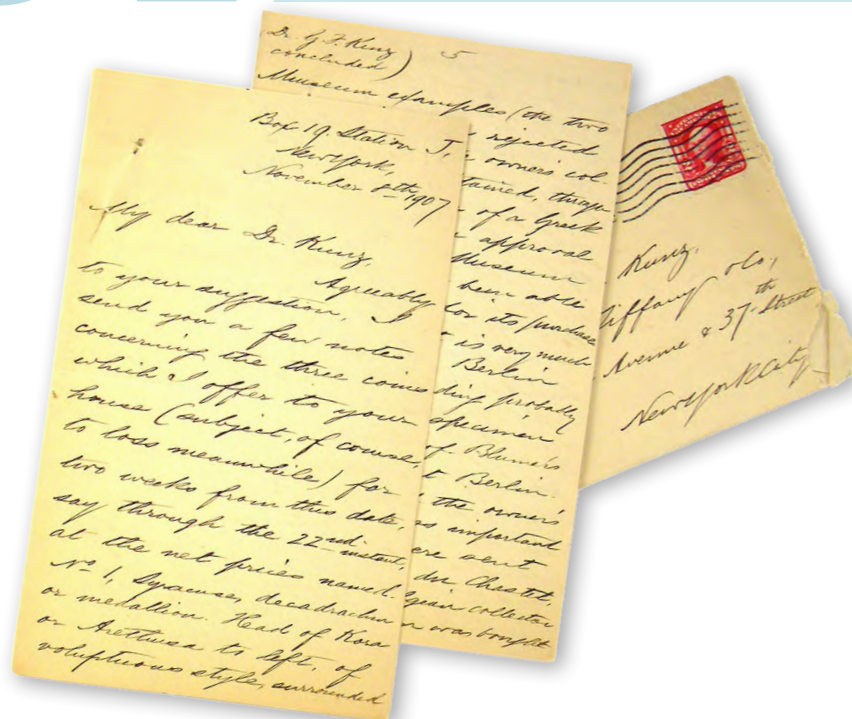 Box 19. Station J,
New York,
November 8th 1907
My dear Dr. Kunz,
Agreeably
to your suggestion, I
send you a few notes
concerning the three coins
which I offer to your
house (subject, of course,
to loss meanwhile) for
two weeks from this date,
say through the 22nd instant,
at the net prices named.
No 1, Syracuse, decadrachm
or medallion. Head of Kora
or Arethusa to left, of
voluptuous style, surrounded
(Dr. G. F. Kunz 5
concluded)
Museum examples (the two
rejected
owner's col-
tained, through
of a Greek
approval
Museum
been able
for its purchase
is very much
Berlin
ding probably
specimen
of Blumer's
t Berlin.
the owner's
as important
ere sent
du Chastel,
lgian collector
was bought
Kunz,
Tiffany & Co,
Avenue & 37th Street
New York City